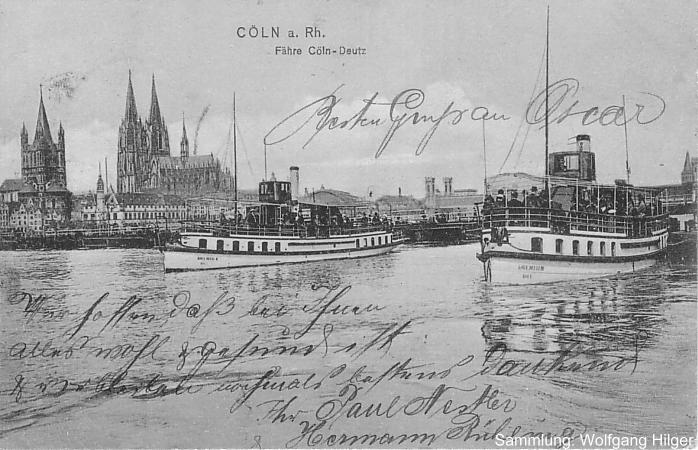 CÖLN a. Rh.
Fähre Cöln-Deutz
Besten Gruß an Oscar
Wir hoffen daß bei Ihnen
alles wohl & gesund ist
& nochmals bestens dankend
Ihr Paul Nestler
Hermann
Sammlung: Wolfgang Hilger